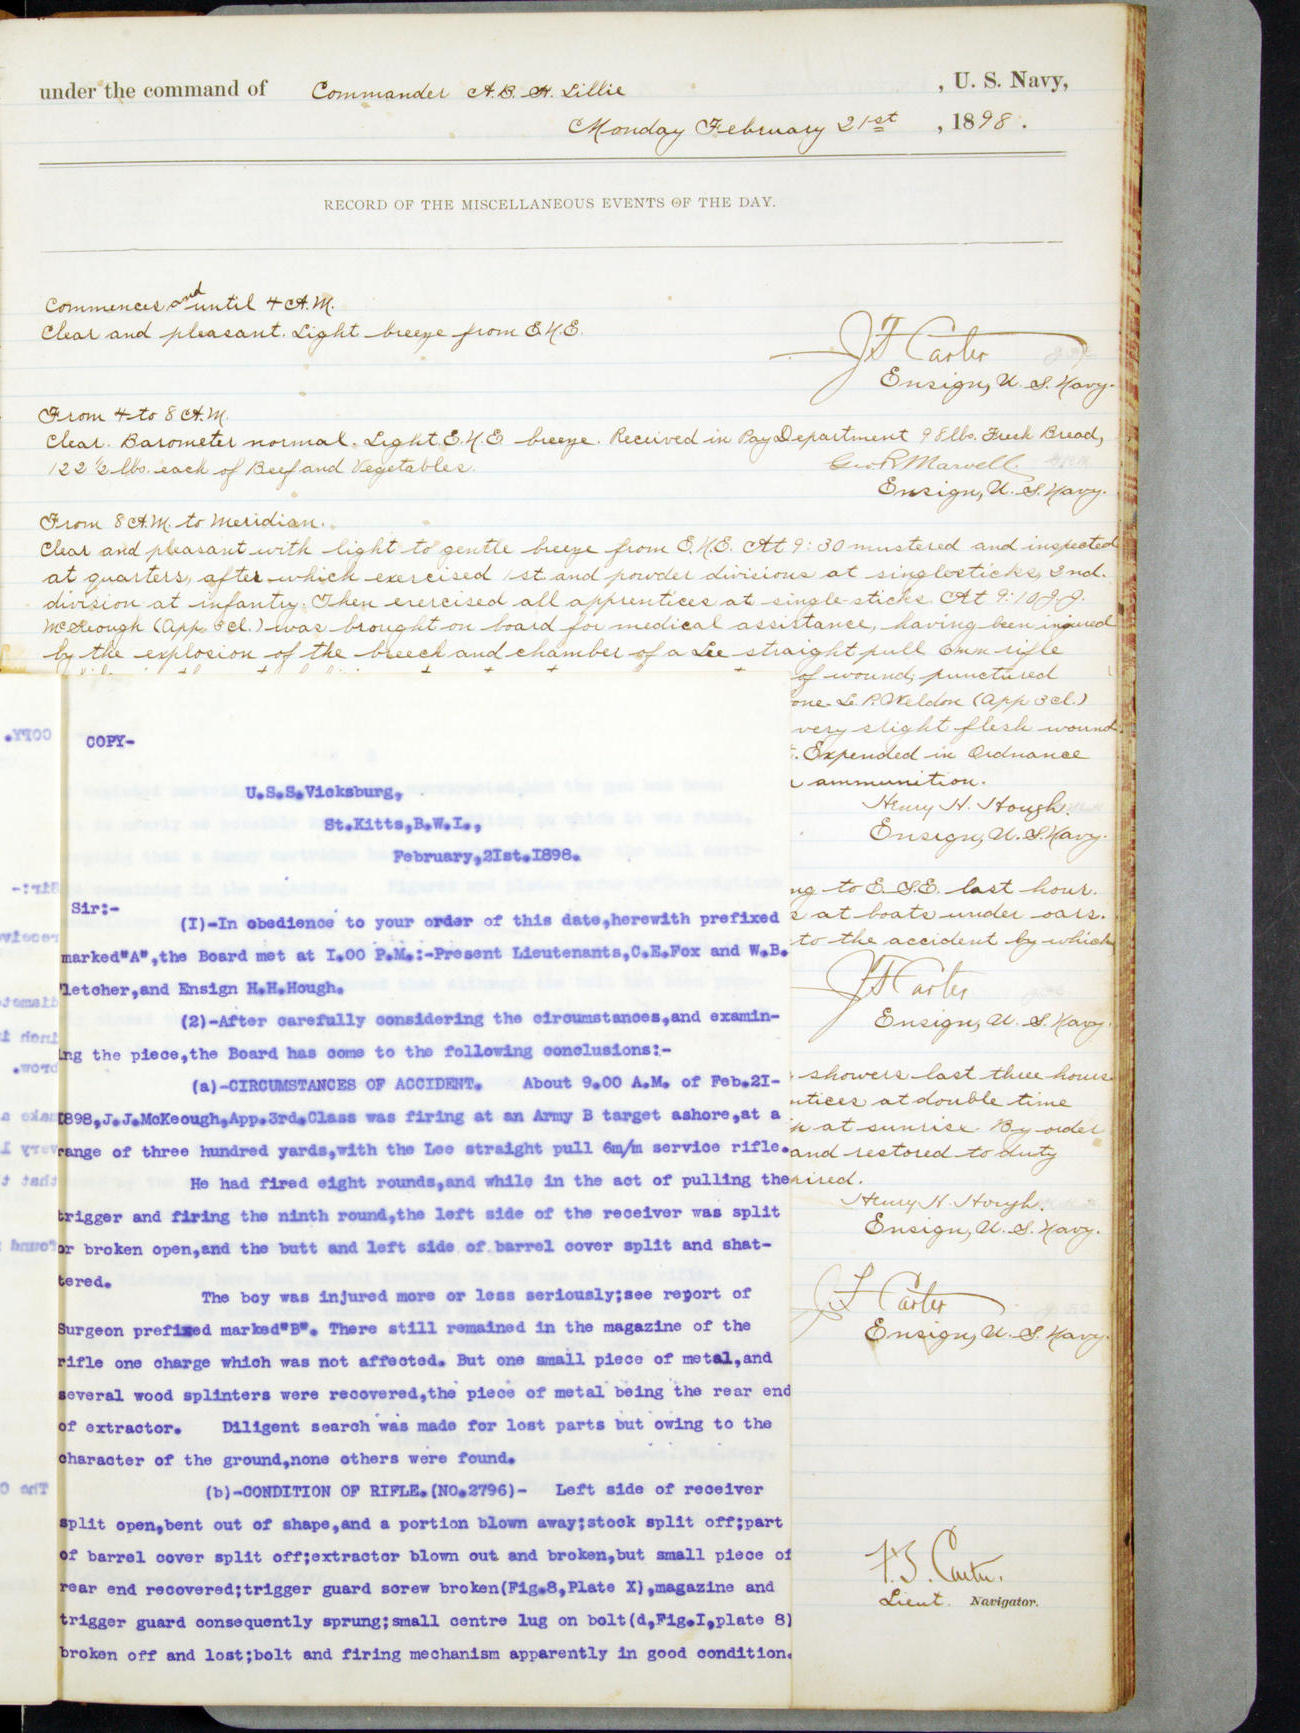 under the command of Commander A. B. H. Lillie , U. S. Navy,
Monday February 21st , 1898 .
RECORD OF THE MISCELLANEOUS EVENTS OF THE DAY.
Commences and until 4 A.M.
Clear and pleasant. Light breeze from E.N.E.
J F Carter
Ensign, U. S. Navy.
From 4 to 8 A.M.
Clear. Barometer normal. Light E.N.E breeze. Received in Pay Department 98 lbs. Fresh Bread,
122 ½ lbs. each of Beef and Vegetables.
Geo R Marvell
Ensign, U. S. Navy.
From 8 A.M. to Meridian.
Clear and pleasant with light to gentle breeze from E.N.E. At 9:30 mustered and inspected
at quarters, after which exercised 1st and powder divisions at singlesticks, 2nd.
division at infantry. Then exercised all apprentices at single-sticks. At 9:10 J. J.
McKeough (App 3 cl.) was brought on board for medical assistance, having been injured
by the explosion of the breech and chamber of a Lee straight pull 6mm rifle
of wound; punctured
one. L. P. Weldon (App 3 cl.)
very slight flesh wound
. Expended in Ordnance
ammunition.
Henry H. Hough.
Ensign, U. S. Navy.
ng to E.S.E. last hour.
s at boats under oars.
to the accident by which
J F Carter
Ensign, U. S. Navy.
showers last three hours.
ntices at double time
at sunrise. By order
and restored to duty
ired.
Henry H. Hough.
Ensign, U. S. Navy.
J F Carter
Ensign, U. S. Navy.
Lieut. Navigator.
COPY-
U.S.S.Vicksburg,
St.Kitts,B.W.I.,
February,2Ist.I898.
Sir:-
(I)-In obedience to your order of this date,herewith prefixed
marked"A",the Board met at I.00 P.M.:-Present Lieutenants,C.E.Fox and W.B.
letcher,and Ensign H.H.Hough.
(2)-After carefully considering the circumstances,and examin-
ing the piece,the Board has come to the following conclusions:-
(a)-CIRCUMSTANCES OF ACCIDENT. About 9.00 A.M. of Feb.2I-
I898,J.J.McKeough,App.3rd.Class was firing at an Army B target ashore,at a
range of three hundred yards,with the Lee straight pull 6m/m service rifle.
He had fired eight rounds,and while in the act of pulling the
trigger and firing the ninth round,the left side of the receiver was split
or broken open,and the butt and left side of barrel cover split and shat-
tered.
The boy was injured more or less seriously;see report of
Surgeon prefixed marked"B". There still remained in the magazine of the
rifle one charge which was not affected. But one small piece of metal,and
several wood splinters were recovered,the piece of metal being the rear end
of extractor. Diligent search was made for lost parts but owing to the
character of the ground,none others were found.
(b)-CONDITION OF RIFLE.(NO.2796)- Left side of receiver
split open,bent out of shape,and a portion blown away;stock split off;part
of barrel cover split off;extractor blown out and broken,but small piece of
rear end recovered;trigger guard screw broken(Fig.8,Plate X),magazine and
trigger guard consequently sprung;small centre lug on bolt(d,Fig.I,plate 8)
broken off and lost;bolt and firing mechanism apparently in good condition.